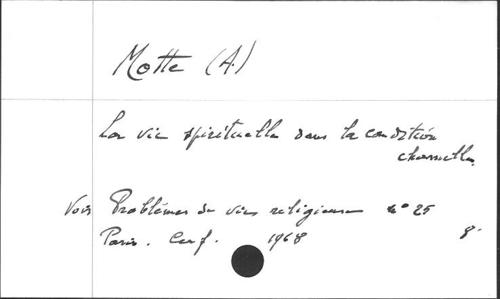 Motte (A.)
La vie spirituelle dans la condition
charnelle.
Voir Problèmes de vie religieuse n° 25
Paris. Cerf. 1968 8°